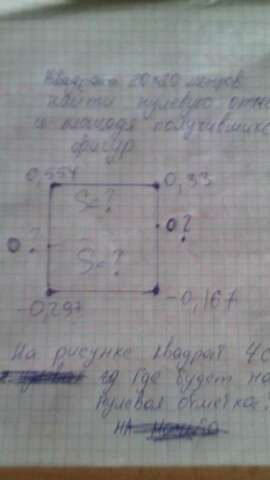 Квадрат 20×20 метров
найти нулевую отме
и площадя получивмихс
фигур
0,557 0,33
S-?
0?
0?
S-?
-0,297 -0,167
На рисунке квадрат
где будет на
нулевая отметка